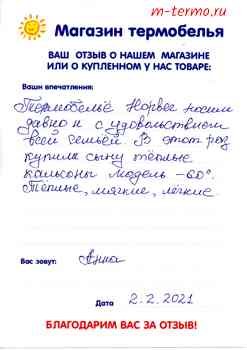 m-termo.ru
Магазин термобелья
ВАШ ОТЗЫВ О НАШЕМ МАГАЗИНЕ
ИЛИ О КУПЛЕННОМ У НАС ТОВАРЕ:
Ваши впечатления:
Термобельё Норвег носим
давно и с удовольствием
всей семьёй. В этот раз
купила сыну тёплые
кальсоны модель -60°.
Тёплые, мягкие, лёгкие.
Вас зовут: Анна
Дата 2.2.2021
БЛАГОДАРИМ ВАС ЗА ОТЗЫВ!